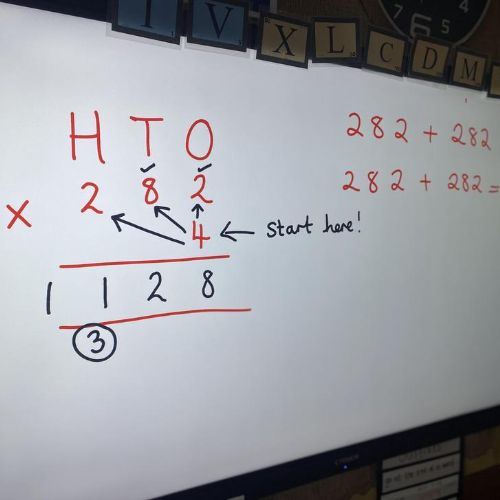 I V X L C D M
H T O
2 8 2
x 4 ← Start here!
1 1 2 8
3
282 + 282
282 + 282 =